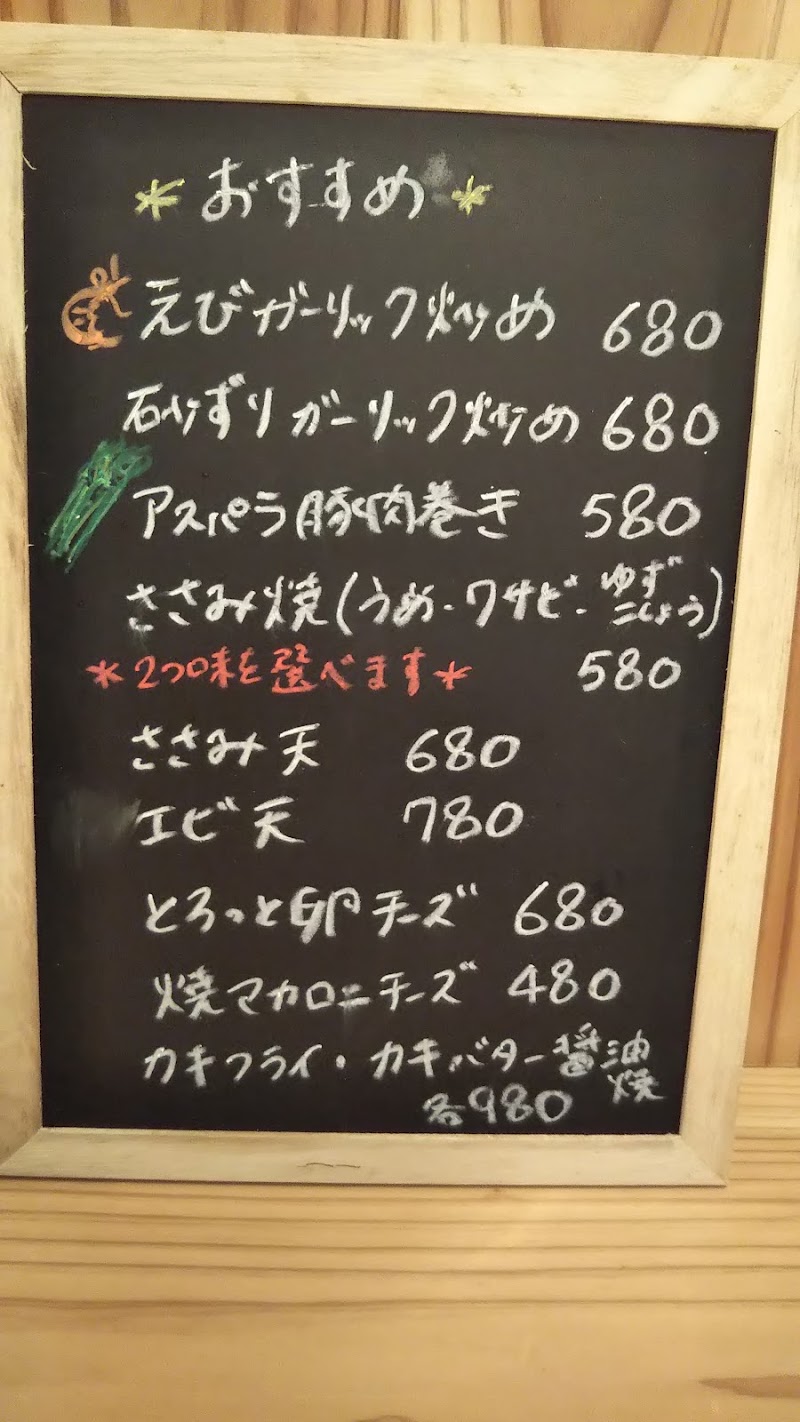 *おすすめ*
えびガーリック炒め 680
砂ずりガーリック炒め 680
アスパラ豚肉巻き 580
ささみ焼(うめ・ワサビ・ゆずこしょう)
*2つ味を選べます* 580
ささみ天 680
エビ天 780
とろっと卵チーズ 680
焼マカロニチーズ 480
カキフライ・カキバター醤油焼
各980